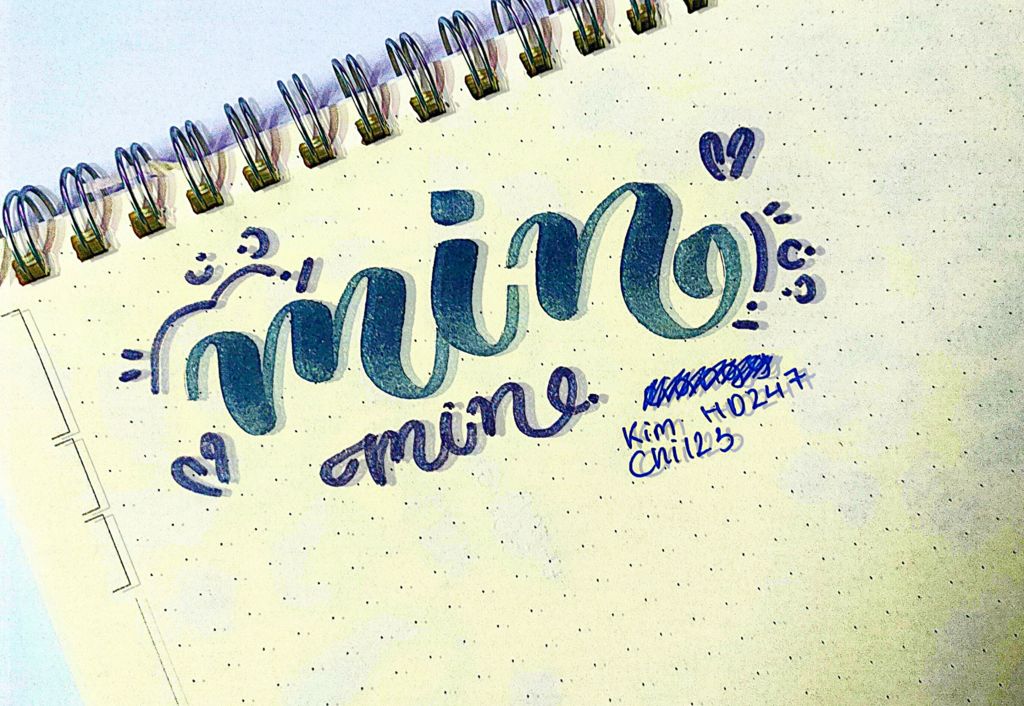 min
mine.
Kim HD247
Chi123